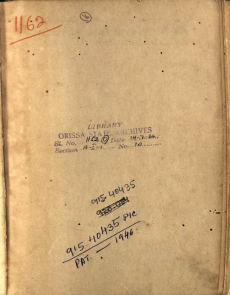 1162
LIBRARY
ORISSA STATE ARCHIVES
SL No. 1162 Date
Section No.
915.40435
915.40435 PIC
PAT 1946